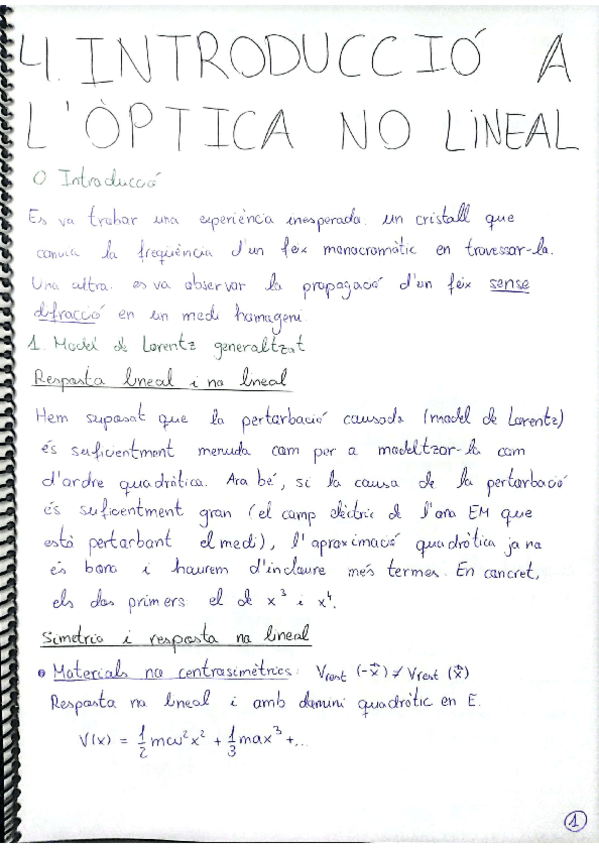 4. INTRODUCCIÓ A
L'ÒPTICA NO LINEAL
0 Introducció
Es va trobar una experiència inesperada: un cristall que
canvia la freqüència d'un feix monocromàtic en travessar-la.
Una altra: es va observar la propagació d'un feix sense
difracció en un medi homogeni
1. Model de Lorentz generalitzat
Resposta lineal i no lineal
Hem suposat que la pertorbació causada (model de Lorentz)
és suficientment menuda com per a modelitzar-la com
d'ordre quadràtica. Ara bé, si la causa de la pertorbació
és suficentment gran (el camp elèctric de l'ona EM que
està pertorbant el medi), l'aproximació quadràtica ja no
és bona i haurem d'incloure més termes. En concret,
els dos primers: el de x³ i x⁴.
Simetria i resposta no lineal
• Materials no centrosimètrics: Vrest (-x⃗) ≠ Vrest (x⃗)
Resposta no lineal i amb domini quadràtic en E.
V(x) = 1/2 mω²x² + 1/3 max³ + ...
1